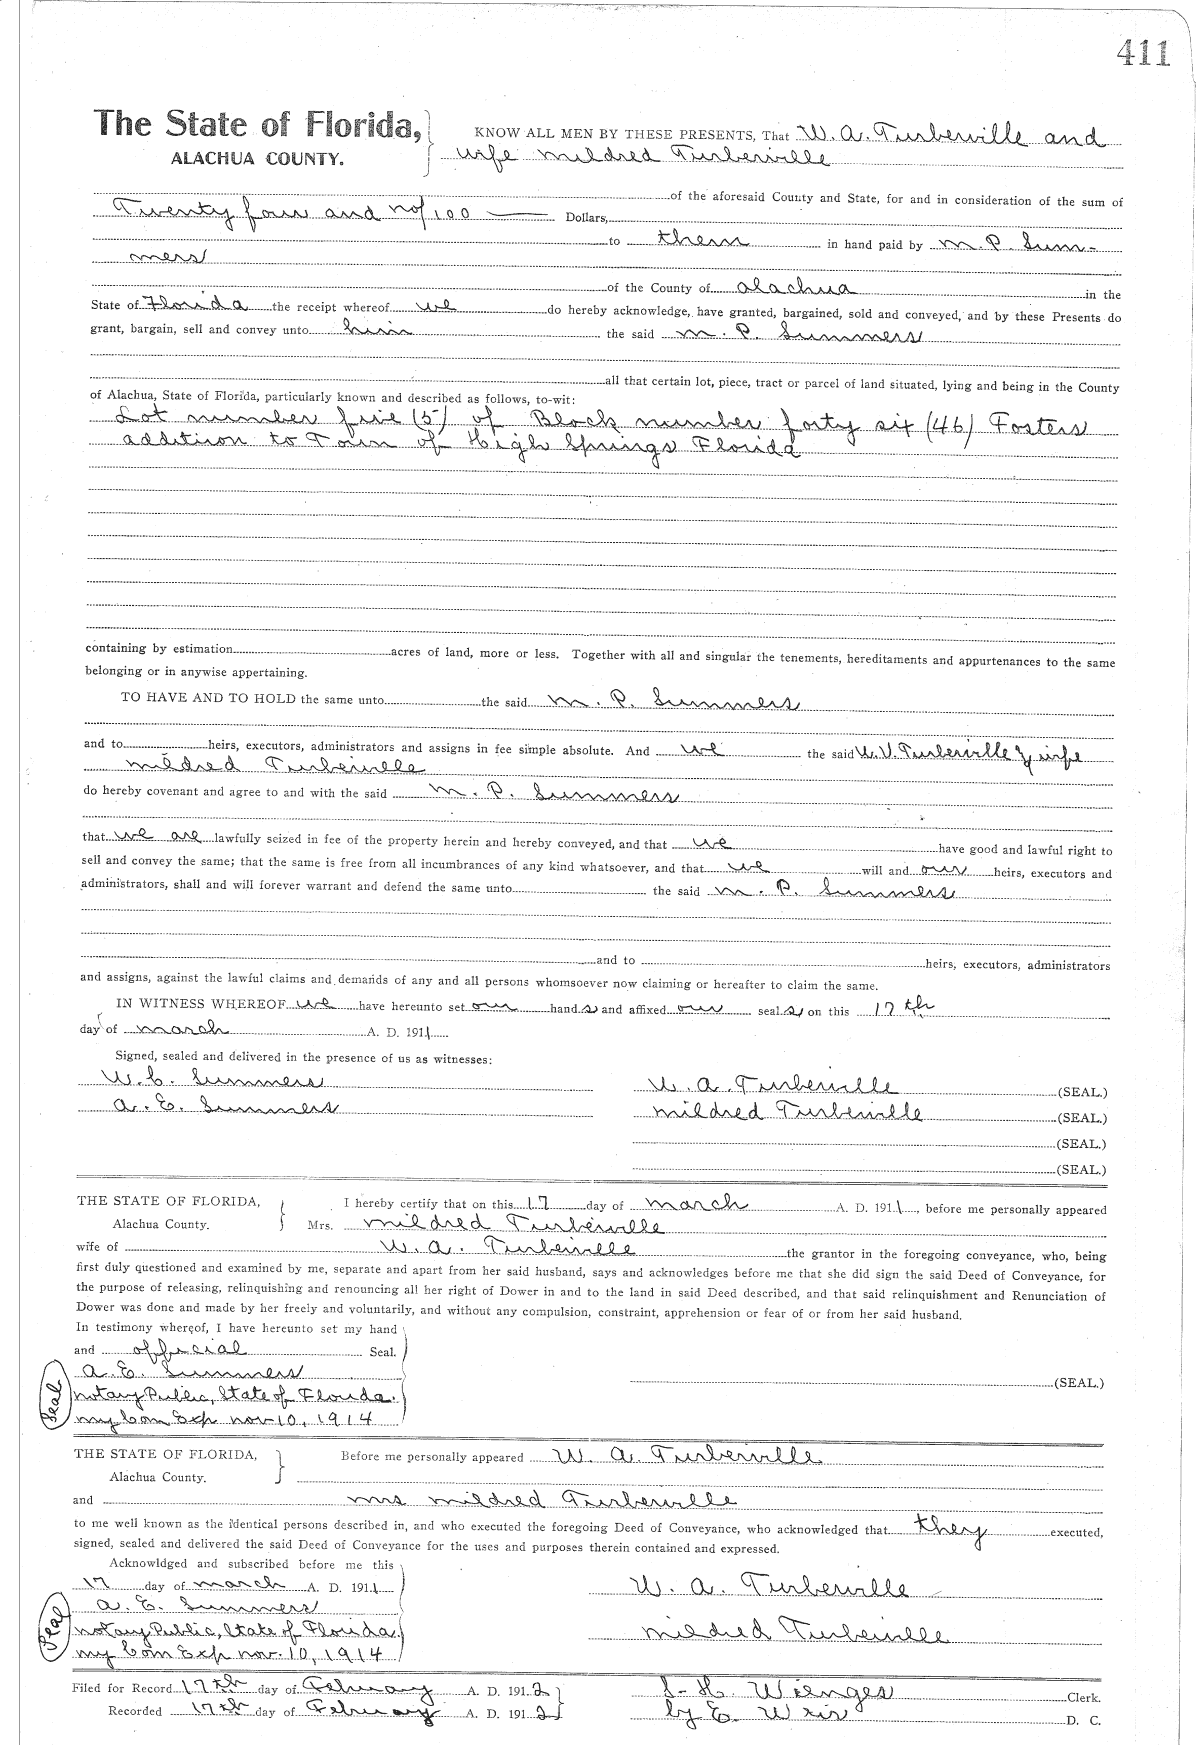 411
The State of Florida,
ALACHUA COUNTY.
KNOW ALL MEN BY THESE PRESENTS, That W. A. Turberville and
wife Mildred Turberville
of the aforesaid County and State, for and in consideration of the sum of
Twenty four and no/100 Dollars,
to them in hand paid by M. P. Sum-
mers
of the County of Alachua in the
State of Florida the receipt whereof we do hereby acknowledge, have granted, bargained, sold and conveyed, and by these Presents do
grant, bargain, sell and convey unto him the said M. P. Summers
all that certain lot, piece, tract or parcel of land situated, lying and being in the County
of Alachua, State of Florida, particularly known and described as follows, to-wit:
Lot number five (5) of Block number forty six (46) Fosters
addition to Town of High Springs Florida
containing by estimation acres of land, more or less. Together with all and singular the tenements, hereditaments and appurtenances to the same
belonging or in anywise appertaining.
TO HAVE AND TO HOLD the same unto the said M. P. Summers
and to heirs, executors, administrators and assigns in fee simple absolute. And we the said W. V. Turberville & wife
Mildred Turberville
do hereby covenant and agree to and with the said M. P. Summers
that we are lawfully seized in fee of the property herein and hereby conveyed, and that we have good and lawful right to
sell and convey the same; that the same is free from all incumbrances of any kind whatsoever, and that we will and our heirs, executors and
administrators, shall and will forever warrant and defend the same unto the said M. P. Summers
and to heirs, executors, administrators
and assigns, against the lawful claims and demands of any and all persons whomsoever now claiming or hereafter to claim the same.
IN WITNESS WHEREOF we have hereunto set our hands and affixed our seals on this 17th
day of March A. D. 1911
Signed, sealed and delivered in the presence of us as witnesses:
W. C. Summers W. A. Turberville (SEAL.)
A. E. Summers Mildred Turberville (SEAL.)
(SEAL.)
(SEAL.)
THE STATE OF FLORIDA, I hereby certify that on this 17 day of March A. D. 1911, before me personally appeared
Alachua County. Mrs. Mildred Turberville
wife of W. A. Turberville the grantor in the foregoing conveyance, who, being
first duly questioned and examined by me, separate and apart from her said husband, says and acknowledges before me that she did sign the said Deed of Conveyance, for
the purpose of releasing, relinquishing and renouncing all her right of Dower in and to the land in said Deed described, and that said relinquishment and Renunciation of
Dower was done and made by her freely and voluntarily, and without any compulsion, constraint, apprehension or fear of or from her said husband.
In testimony whereof, I have hereunto set my hand
and official Seal.
A. E. Summers
(SEAL.)
Seal
Notary Public, State of Florida.
my Com Exp Nov 10, 1914
THE STATE OF FLORIDA, Before me personally appeared W. A. Turberville
Alachua County.
and Mrs Mildred Turberville
to me well known as the identical persons described in, and who executed the foregoing Deed of Conveyance, who acknowledged that they executed,
signed, sealed and delivered the said Deed of Conveyance for the uses and purposes therein contained and expressed.
Acknowldged and subscribed before me this
17 day of March A. D. 1911 W. A. Turberville
A. E. Summers
Seal
Notary Public, State of Florida. Mildred Turberville
my Com Exp Nov. 10, 1914
Filed for Record 17th day of February A. D. 1912 S. H. Wienges Clerk.
Recorded 17th day of February A. D. 1912 by E. D. C.